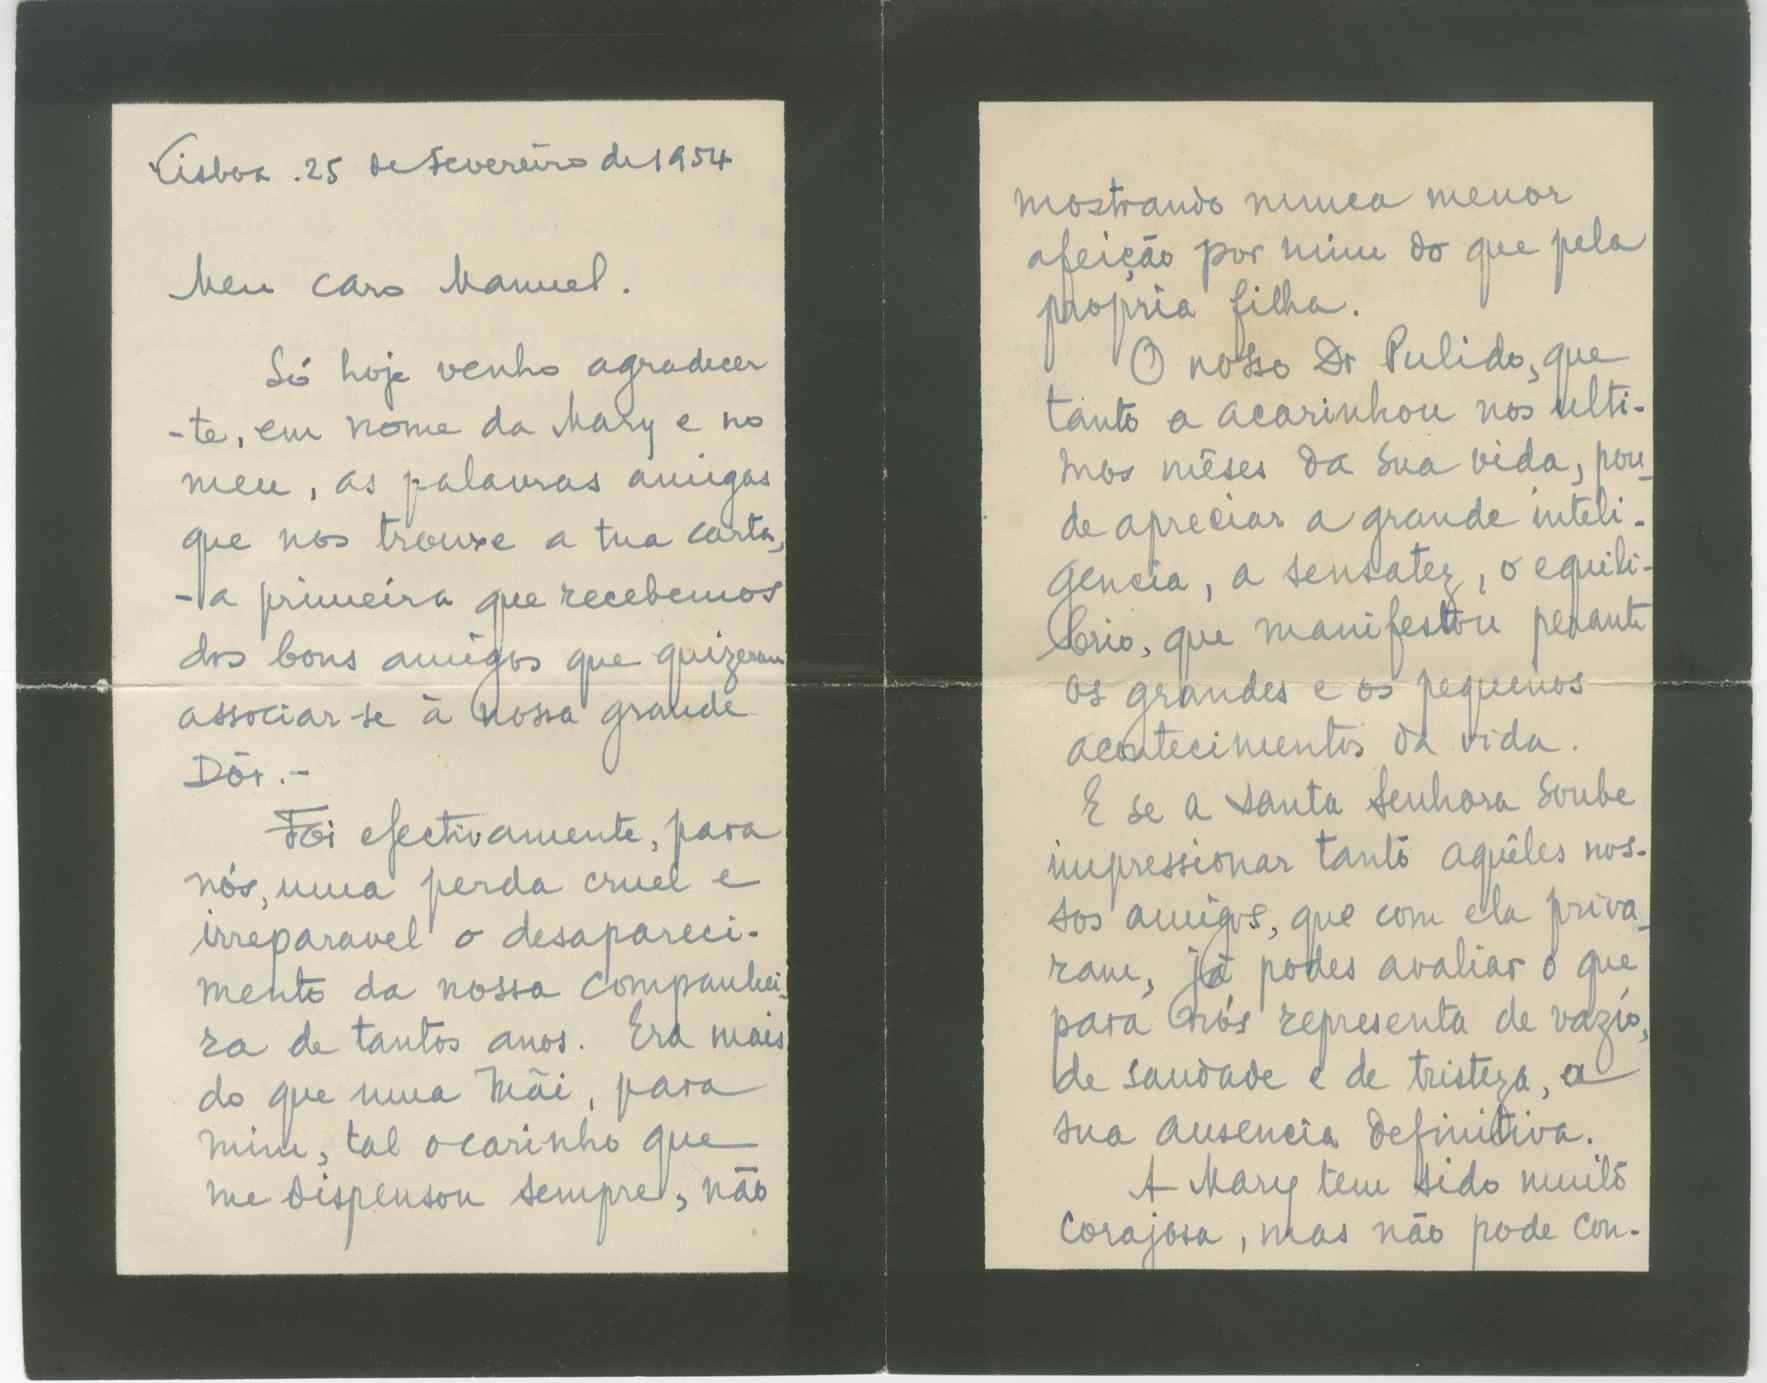 Lisboa. 25 de Fevereiro de 1954
Meu caro Manuel.
Só hoje venho agradecer
-te, em nome da Mary e no
meu, as palavras amigas
que nos trouxe a tua carta,
-a primeira que recebemos
dos bons amigos que quizeram
associar-se à nossa grande
Dôr.-
Foi efectivamente, para
nós, uma perda cruel e
irreparavel o desapareci-
mento da nossa companhei-
ra de tantos anos. Era mais
do que uma Mãi, para
mim, tal o carinho que
me dispensou sempre, não
mostrando nunca menor
afeição por mim do que pela
propria filha.
O nosso Dr Pulido, que
tanto a acarinhou nos ulti-
mos mêses da sua vida, pou-
de apreciar a grande inteli-
gencia, a sensatez, o equili-
brio, que manifestou perante
os grandes e os pequenos
acontecimentos da vida.
E se a Santa Senhora soube
impressionar tanto aquêles nos-
sos amigos, que com ela priva-
ram, já podes avaliar o que
para nós representa de vazio,
de saudade e de tristeza, a
sua ausencia definitiva.
A Mary tem sido muito
corajosa, mas não pode con-